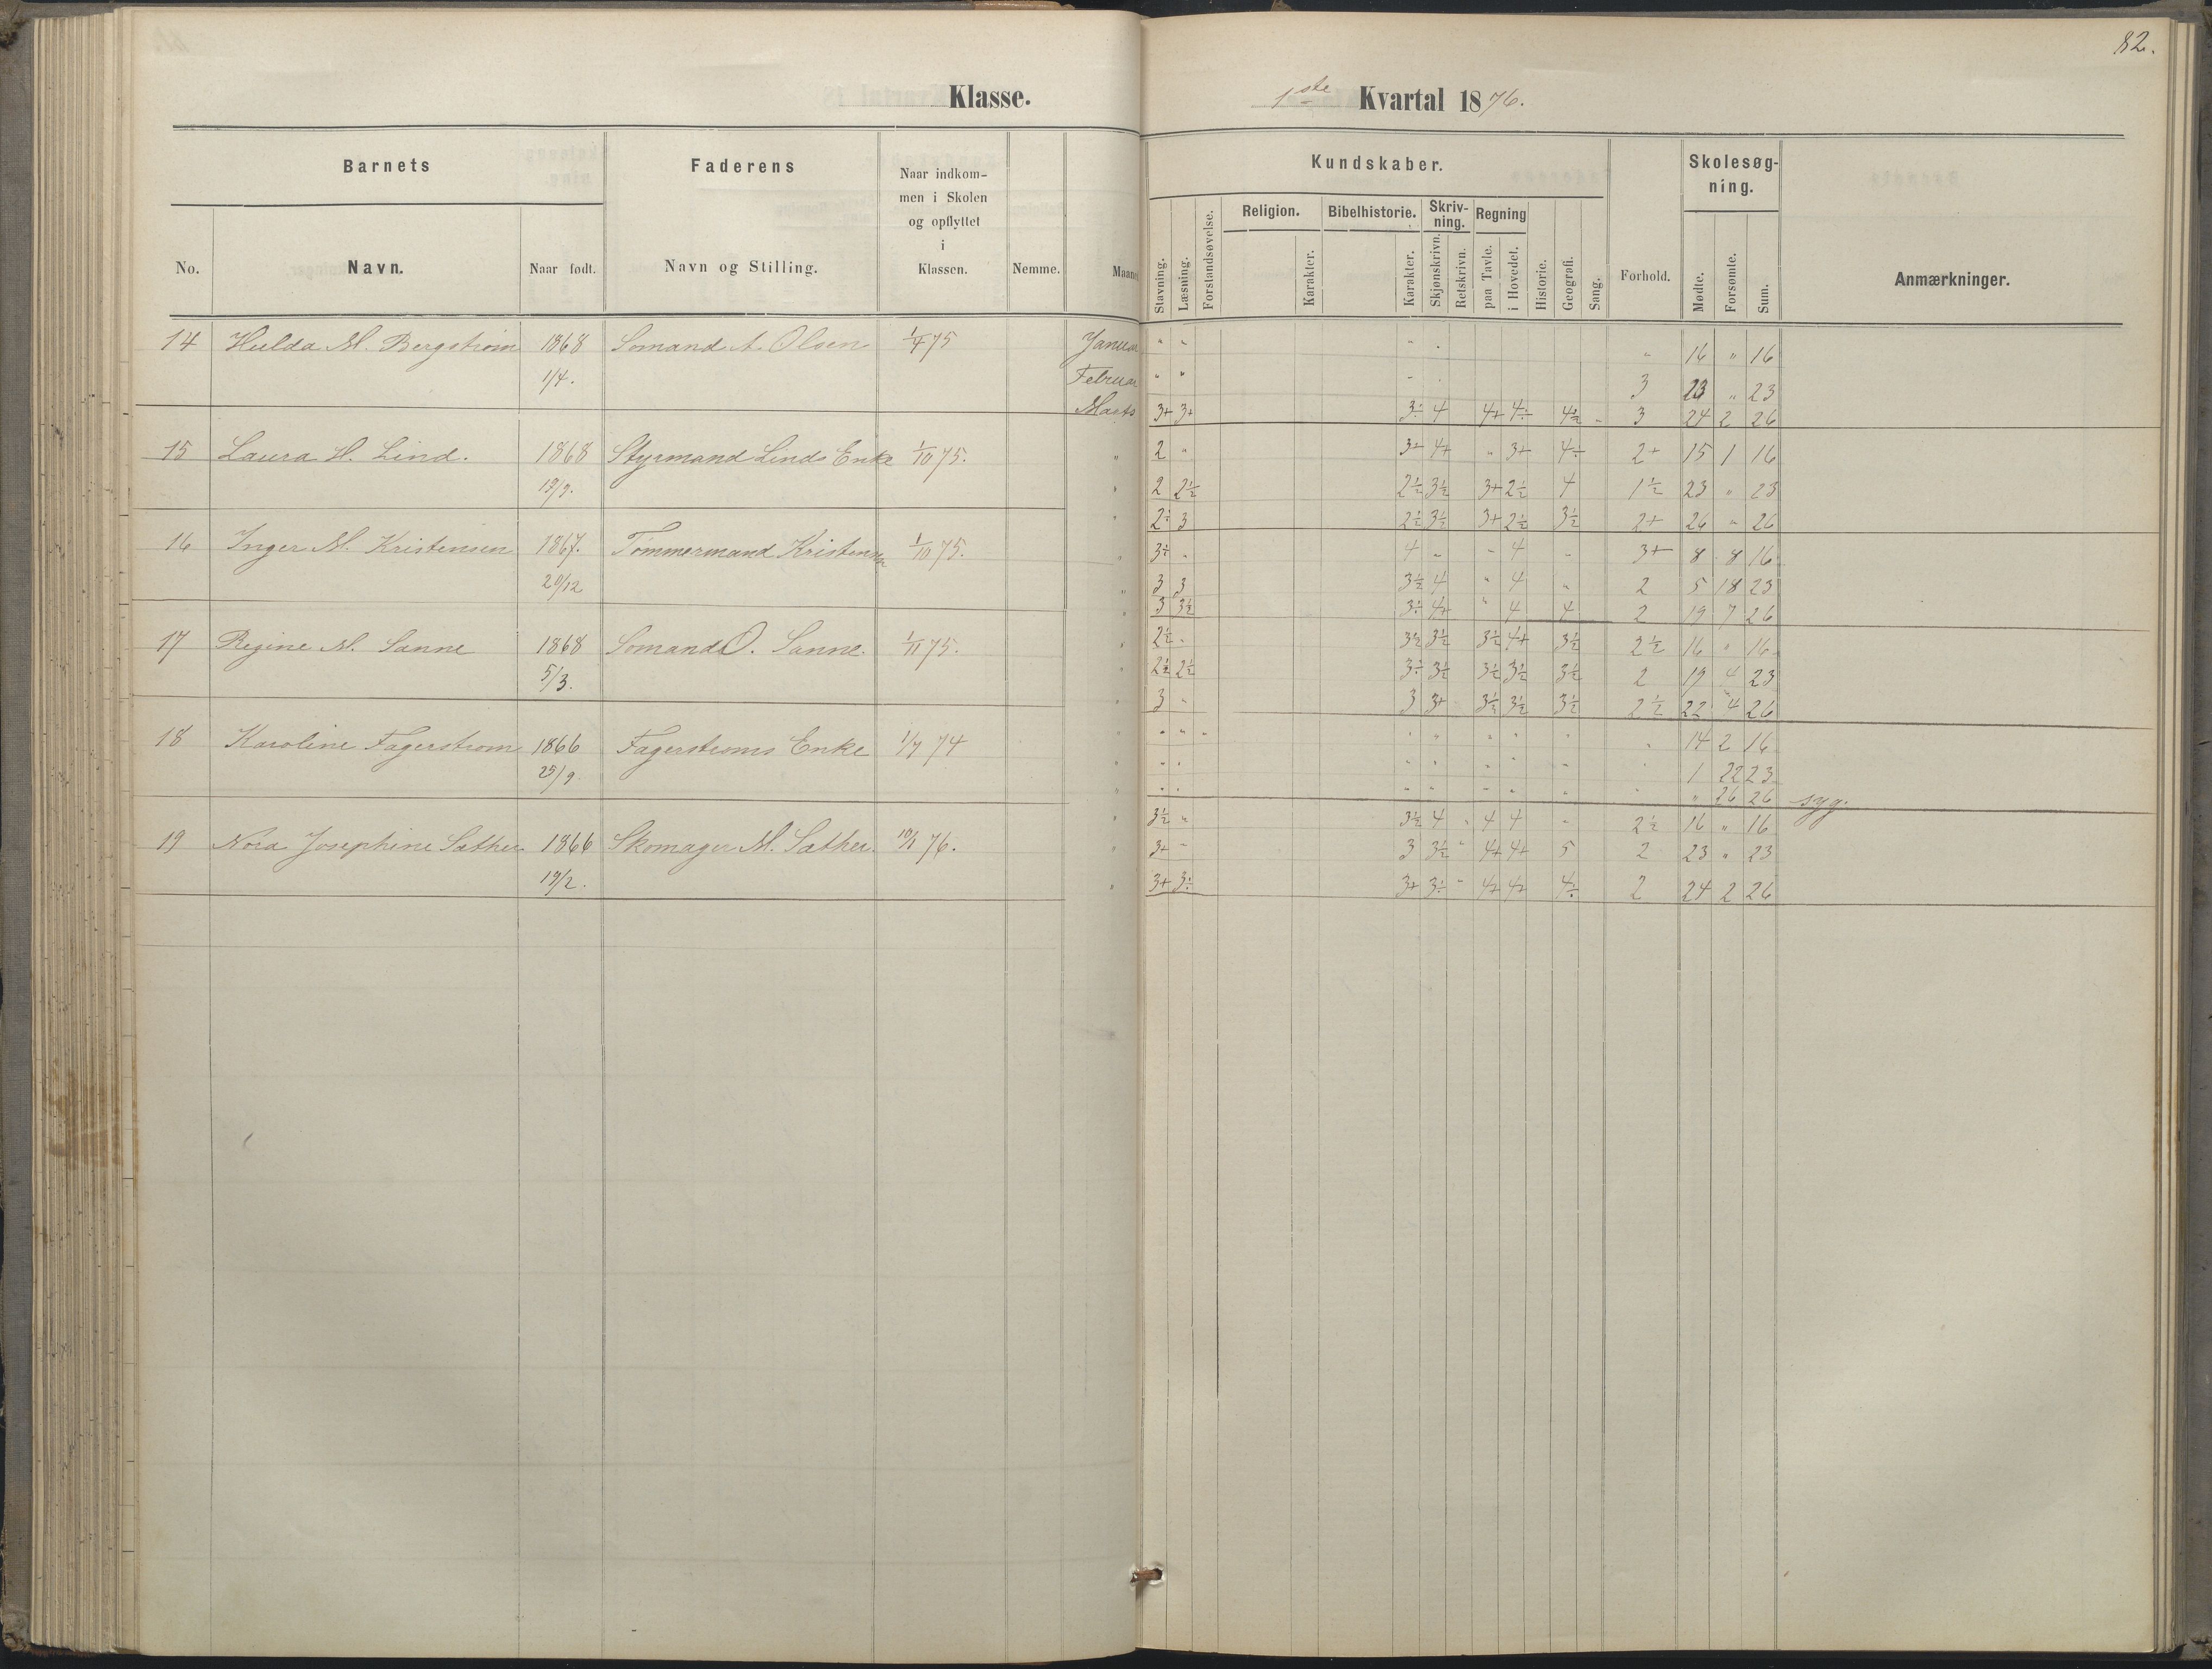 82.
Klasse.
1ste Kvartal 1876.
Barnets
Faderens
Naar indkommen i Skolen og opflyttet i Klassen.
Nemme.
Maaned
Kundskaber.
Forhold.
Skolesøgning.
Anmærkninger.
No.
Navn.
Naar født.
Navn og Stilling.
Stavning.
Læsning.
Forstandsøvelse.
Religion.
Karakter.
Bibelhistorie.
Karakter.
Skrivning.
Skjønskrivn.
Retskrivn.
Regning
paa Tavle.
i Hovedet.
Historie.
Geografi.
Sang.
Mødte.
Forsømte.
Sum.
14 Hulda M. Bergstrøm 1868 Sømand A. Olsen 1/4 75 Januar " " " " " 16 " 16
1/4. Februar " " " " 3 23 " 23
Marts 3+ 3+ 3÷ 4 4+ 4÷ 4½ 3 24 2 26
15 Laura H. Lind. 1868 Styrmand Linds Enke 1/10 75. " 2 " 3+ 4+ " 3+ 4÷ 2+ 15 1 16
19/9. " 2 2½ 2½ 3½ 3+ 2½ 4 1½ 23 " 23
" 2½ 3 2½ 3½ 3+ 2½ 3½ 2+ 26 " 26
16 Inger M. Kristensen 1867. Tømmermand Kristensen 1/10 75. " 3÷ " 4 " " 4 " 3+ 8 8 16
20/12 " 3 3 3½ 4 " 4 " 2 5 18 23
" 3 3½ 3÷ 4+ " 4 4 2 19 7 26
17 Regine M. Sanne 1868 Sømand O. Sanne. 1/11 75. " 2½ " 3½ 3½ 3½ 4+ 3½ 2½ 16 " 16
5/3. " 2½ 2½ 3÷ 3½ 3½ 3½ 3½ 2 19 4 23
" 3 " 3 3+ 3½ 3½ 3½ 2½ 22 4 26
18 Karoline Fagerstrøm 1866 Fagerstrøms Enke 1/7 74 " " " " " " " " " " 14 2 16
25/9. " " " " " " " " " 1 22 23
" " " " " " " " " " 26 26 syg.
19 Nora Josephine Sæther 1866 Skomager M. Sæther. 10/1 76. " 3½ " 3½ 4 " 4 4 " 2½ 16 " 16
19/2. " 3+ " 3 3½ " 4+ 4+ 5 2 23 " 23
" 3+ 3÷ 3+ 3÷ " 4+ 4+ 4÷ 2 24 2 26